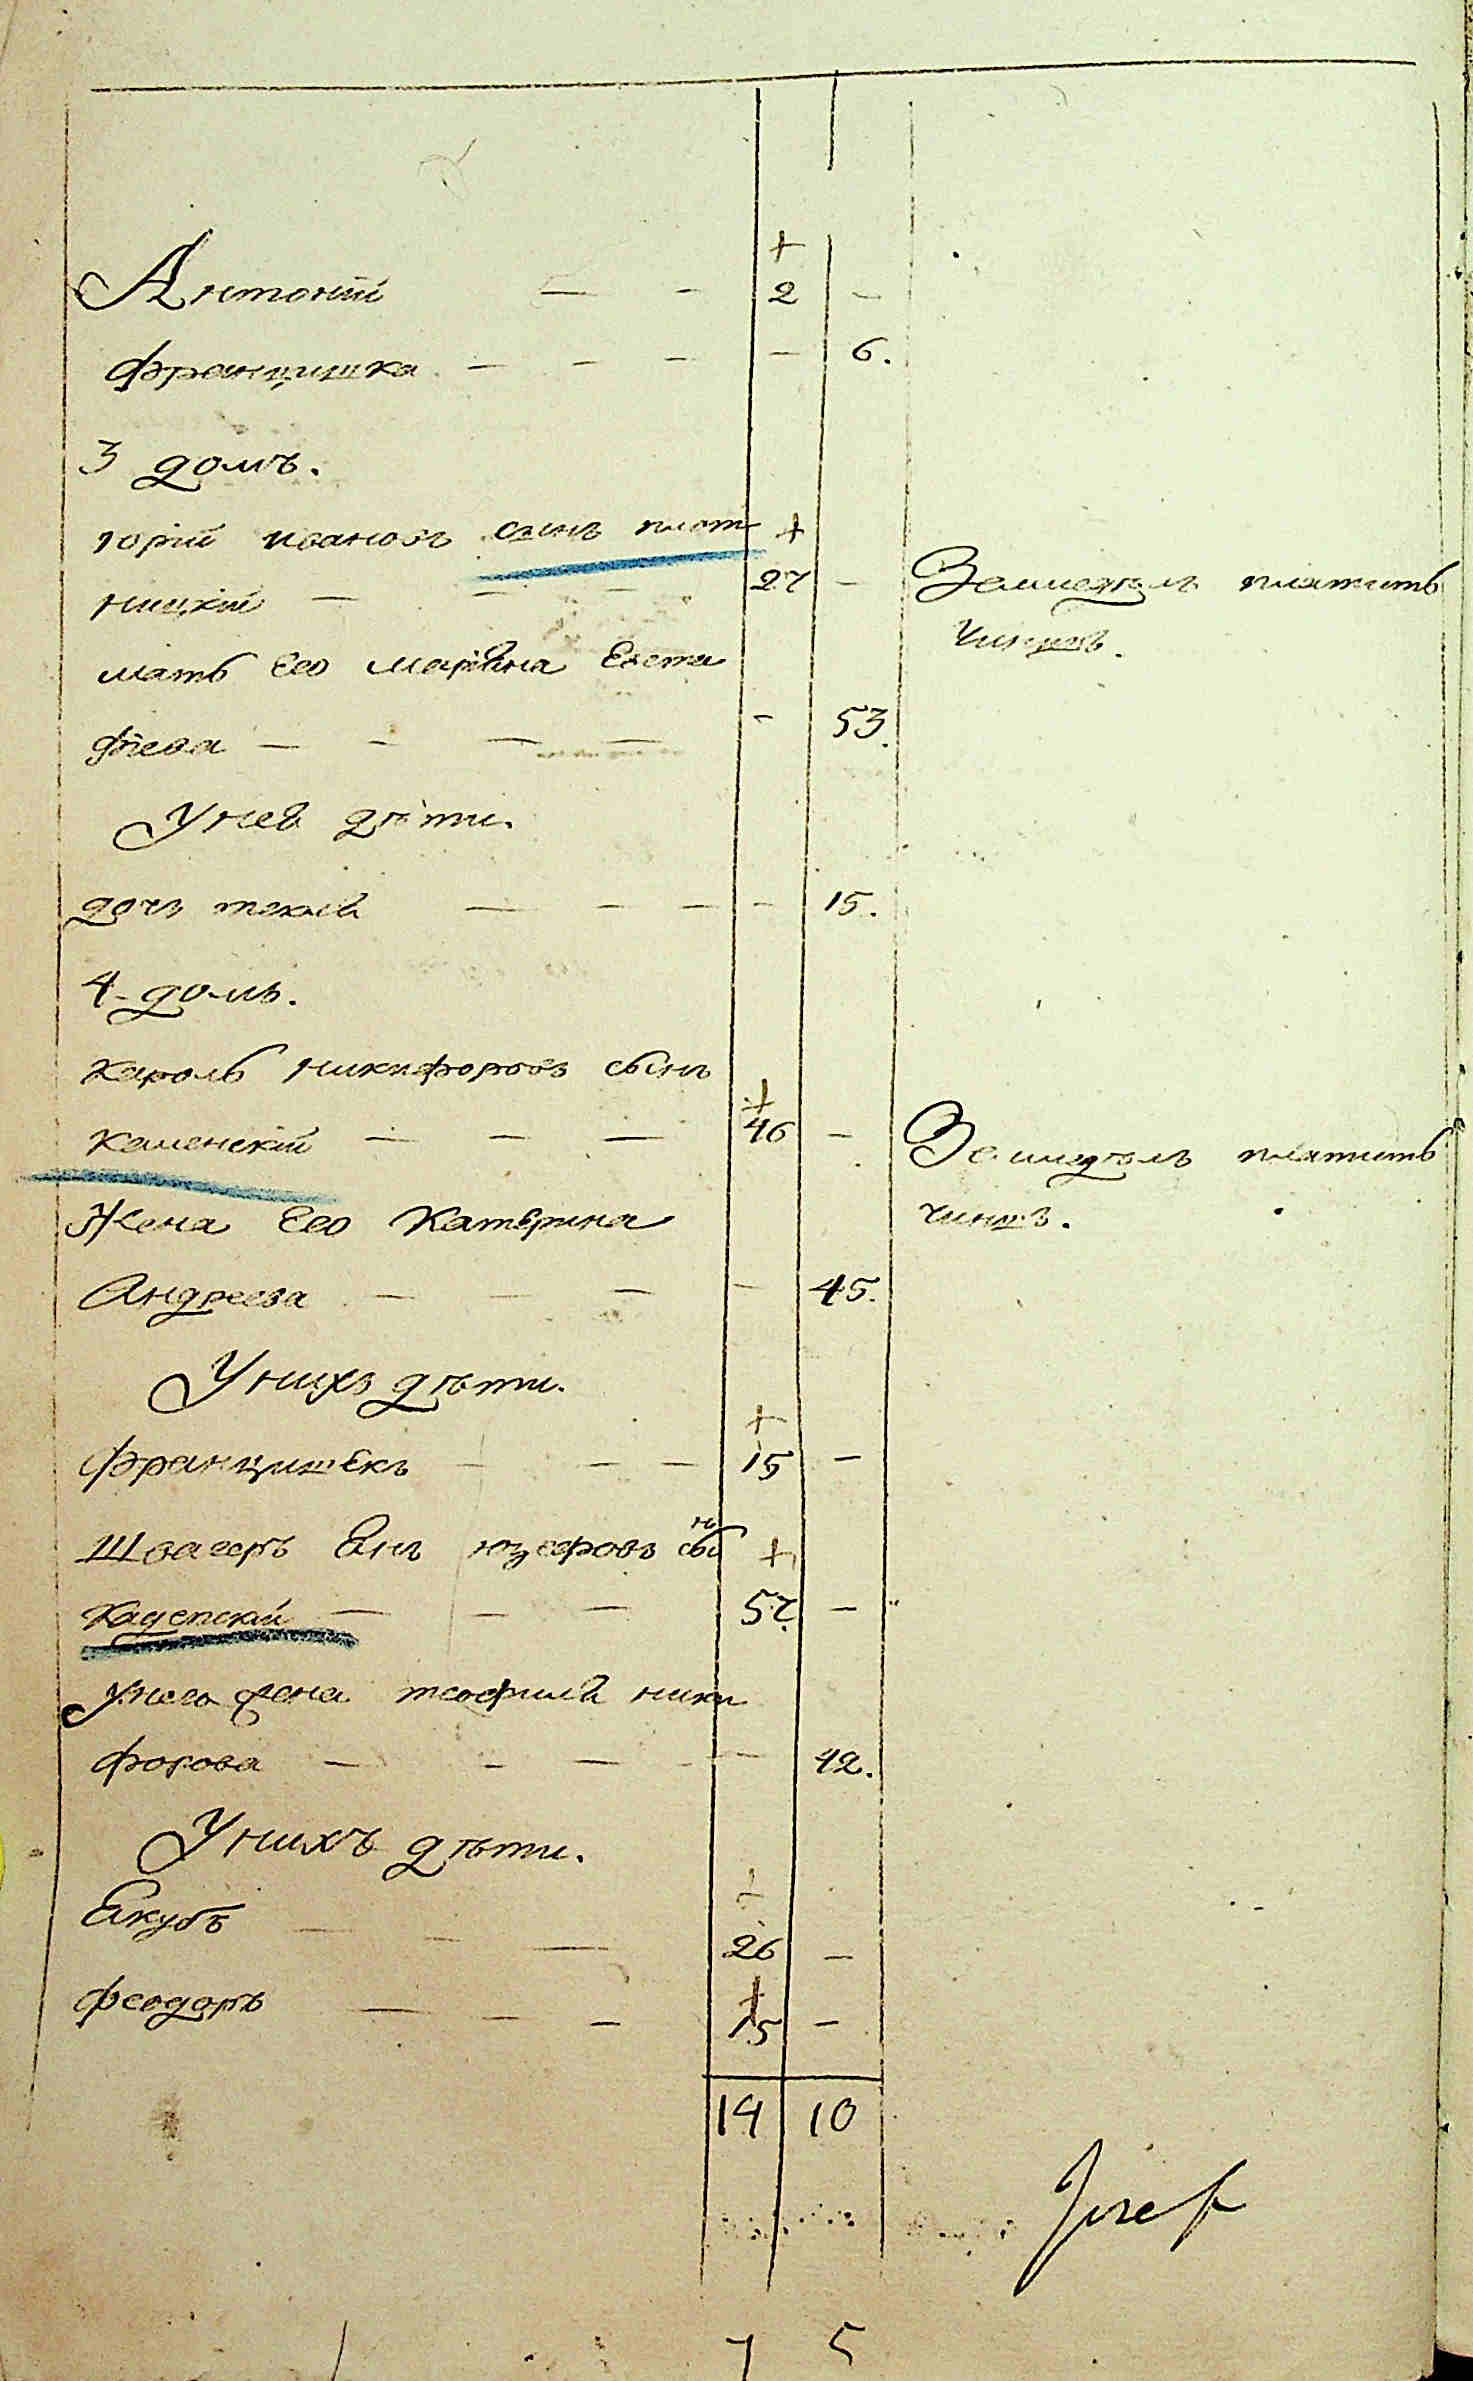 +
Антоній — - 2 -
францишка - - - - 6.
3 домъ.
юрій ивановъ сынъ плот +
ницкій - - - 27 - Земледѣлъ платитъ
чиншъ.
мать Его маріяна Еста
фіева - - - - - 53.
У нея дѣти.
дочъ текля — - - - 15.
4-домъ.
кароль никифоровъ сынъ
+
каменскій - - — 46 - Земледѣлъ платитъ
чиншъ.
Жена Его Катерина
Андреева - - - - 45.
У нихъ дѣти.
+
францишекъ - - - 15 -
Швагеръ Янъ юзефовъ сынъ +
- - - 57. -
У него жена теофиля ники
форова - - - - 42.
У нихъ дѣти.
+
Якубъ - - — 26 -
+
феодоръ — - - 15 -
14 10
Jozef
7 5